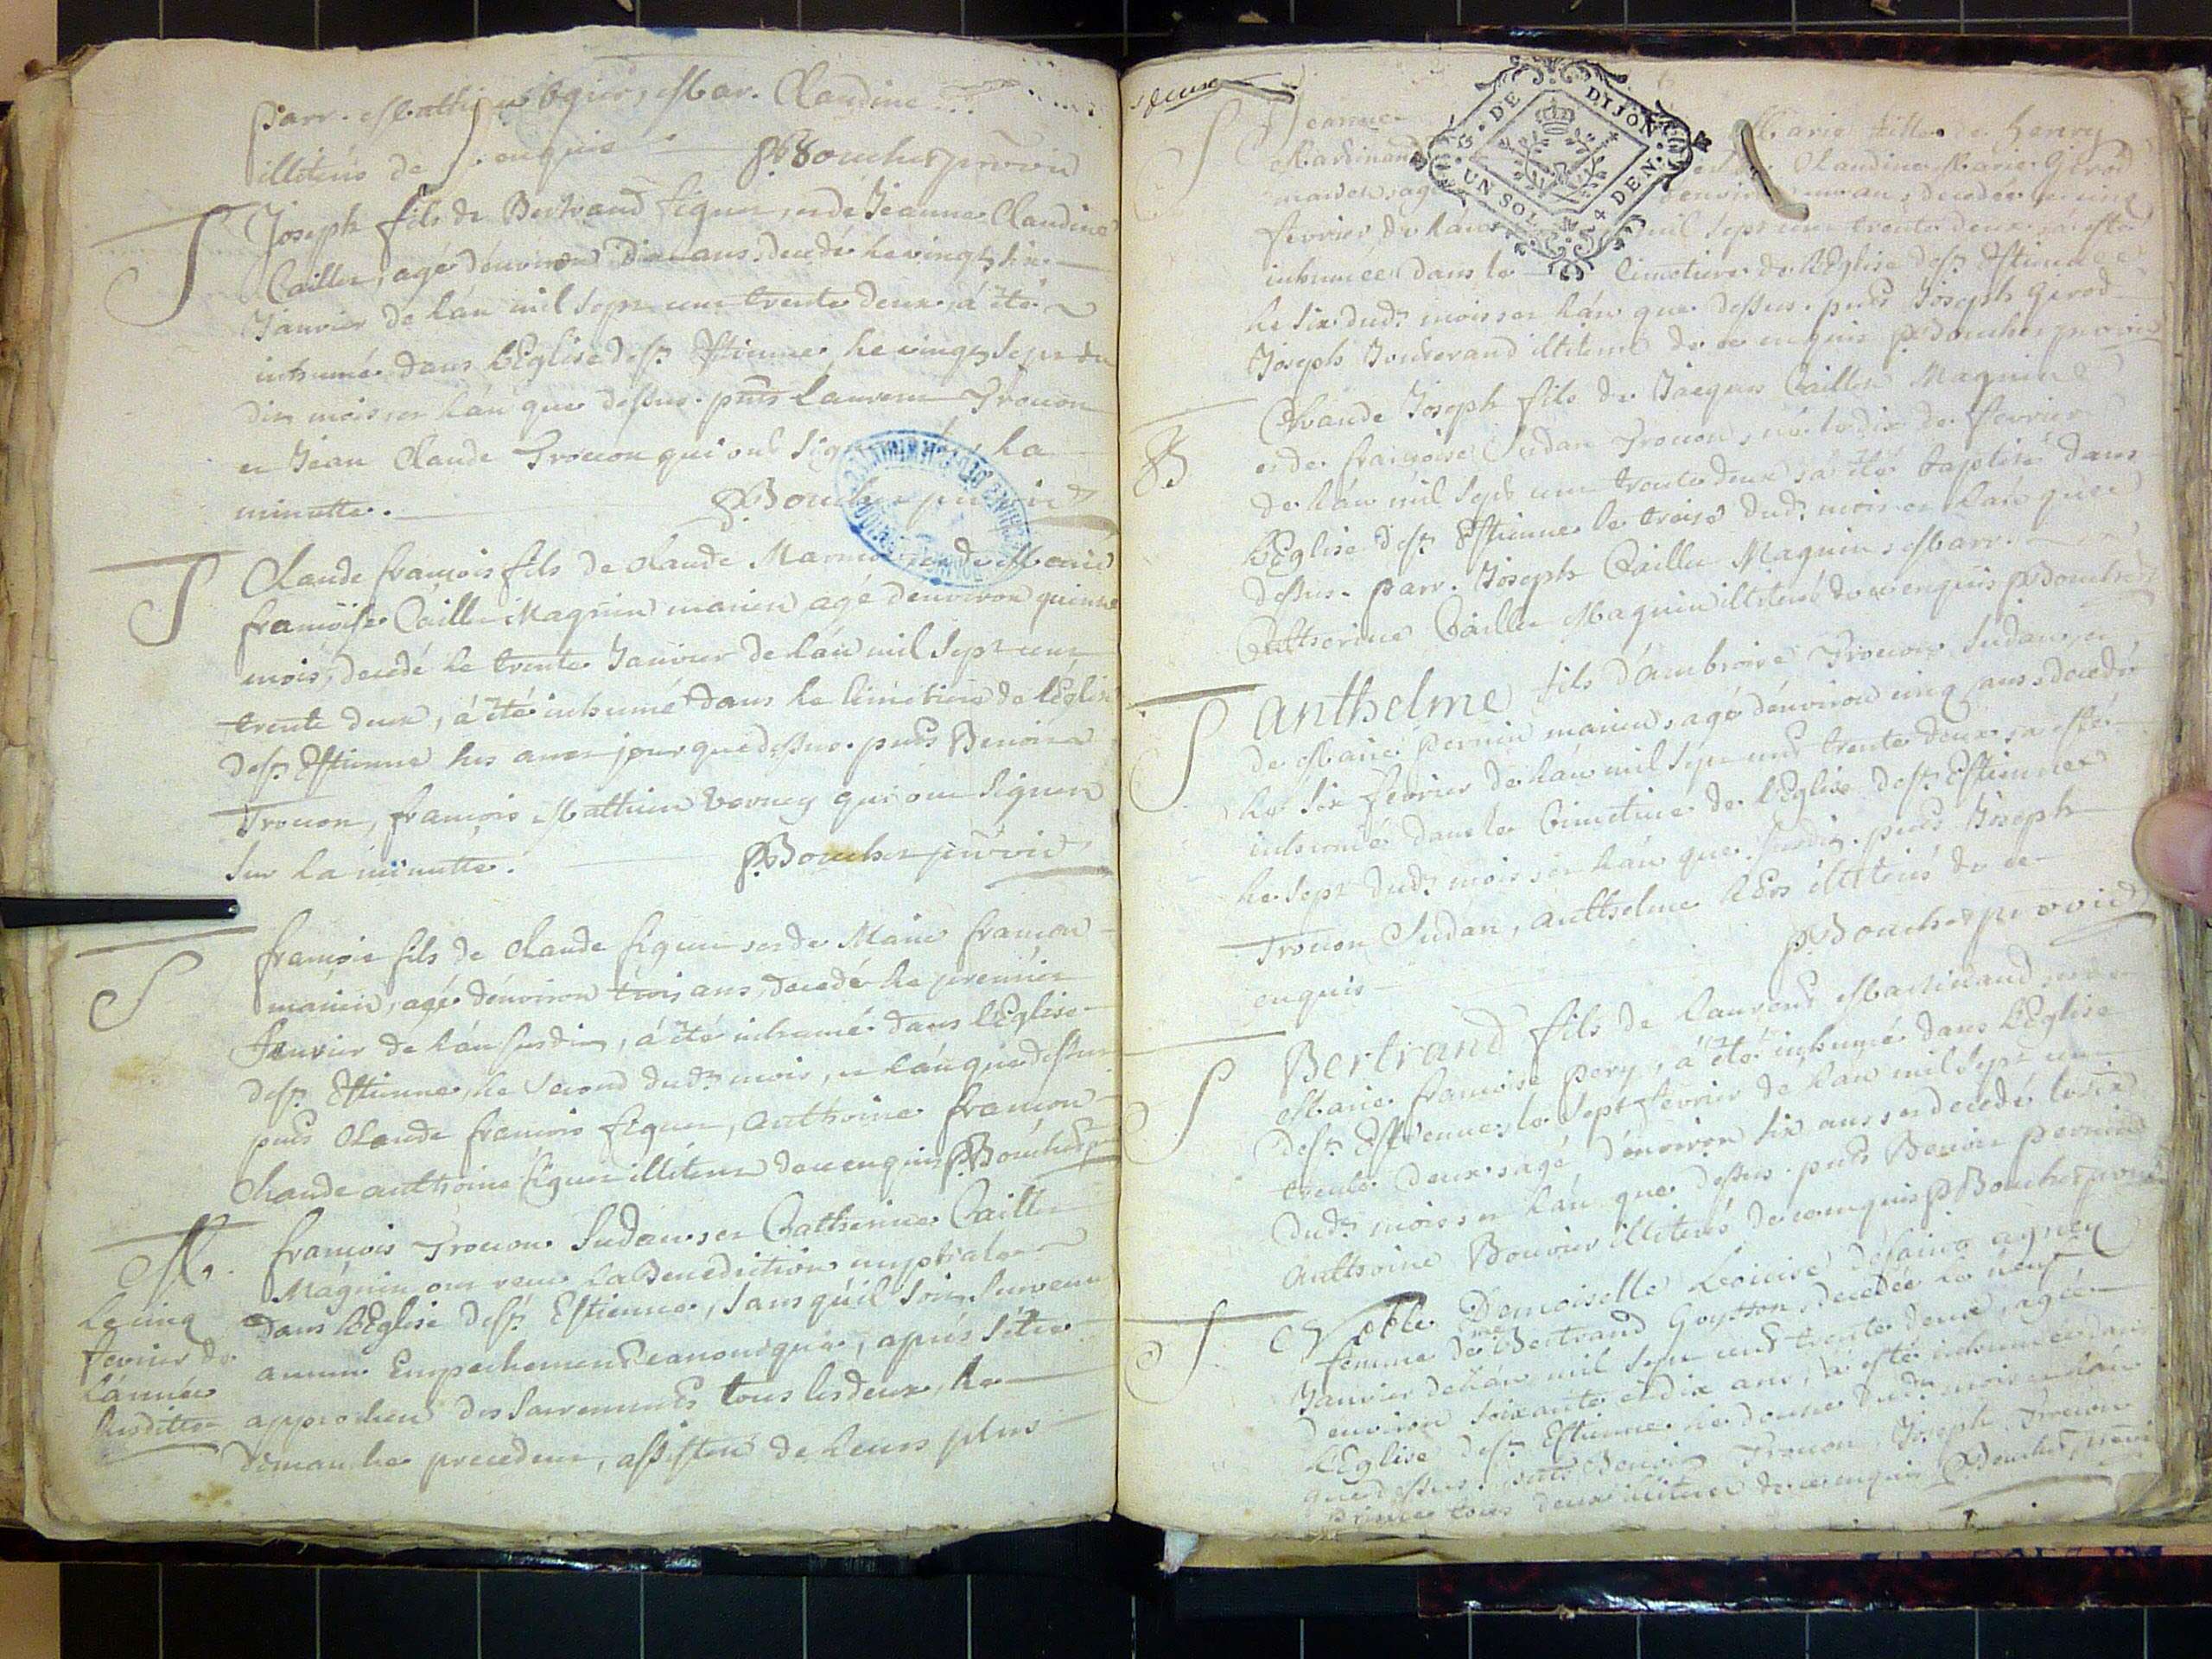 parr. Mathieu Figuet, Mar. Claudine
illiterés de ce enquis P Boucher provid
S Joseph fils de Bertrand figuet, et de Jeanne Claudine
Cailler, agé d'environ dix ans, decedé le vingt six
Janvier de l'an mil sept cent trente deux, á été
inhumé dans l'Eglise de St Estienne, le vingt sept du
dit mois, et l'an que dessus. pnts Laurent Trocon
et Jean Claude Trocon qui ont signé sur la
minutte. P Boucher provid
S Claude francois fils de Claude Marmet, et de Marie
francoise Cailler Magnin mariés agé d'environ quinze
mois, decedé le trente Janvier de l'an mil sept cent
trente deux, á été inhumé dans le Cimetiere de l'Eglise
de St Estienne les an et jour que dessus. pnts Benoist
Trocon, francois Mathieu Verney qui ont signez
sur la minutte. P Boucher provid
S francois fils de Claude figuet et de Marie francon
mariés, agé d'environ trois ans, decedé le premier
fevrier de l'an susdit, á été inhumé dans l'Eglise
de St Estienne, le second dudt mois, et l'an que dessus
pnts Claude francois figuet, anthoine francon
Claude anthoine figuet illiterez de ce enquis P Boucher
M. francois Trocon Sudan et Catherine Cailler
Magnin ont receu la Benediction nuptiale
Le cinq dans l'Eglise de St Estienne, sans qu'il soit survenu
fevrier de aucun Empechement canonique, aprés s'étre
l'année approchez des sacrements tous les deux, le
susditte dimanche precedent, assistez de leurs plus
S Jeanne Marie fille de henry
Martinand et de Claudine Marie Girod
mariez, agée d'environ un an, decedée le cinq
fevrier de l'an mil sept cent trente deux, a esté
inhumée dans le Cimetiere de l'Eglise de St Estienne
le six dudt mois et l'an que dessus. pnts Joseph Girod
Joseph Jouterand illiterez de ce enquis P Boucher provid
B Claude Joseph fils de Jacques Cailler Magnin
et de francoise Sudan Trocon, né le dix de fevrier
de l'an mil sept cent trente deux, a été baptisé dans
l'Eglise de St Estienne le treize dudt mois et l'an que
dessus. parr. Joseph Cailler Magnin, Marr.
Catherine Cailler Magnin illiterés de ce enquis P Boucher
S Anthelme fils d'ambroise Trocon Sudan, et
de Marie Pernin mariez, agé d'environ cinq ans, decedé
le six fevrier de l'an mil sept cent trente deux, a esté
inhumé dans le Cimetiere de l'Eglise de St Estienne
le sept dudt mois et l'an que susdit. pnts Joseph
Trocon Sudan, anthelme illiterés de ce
enquis P Boucher provid
S Bertrand fils de Laurent Martinand, et de
Marie francoise pery, á été inhumé dans l'Eglise
de St Estienne, le sept fevrier de l'an mil sept cent
trente deux, agé d'environ six ans et decedé le six
dudt mois et l'an que dessus. pnts Benoist pernin
Anthoine Bouvier illiterés de ce enquis P Boucher provid
S Noble Demoiselle Louise de
femme de Mre Bertrand Goyffon, decedée le neuf
Janvier de l'an mil sept cent trente deux, agée
d'environ soixante et dix ans, a esté inhumée dans
l'Eglise de St Estienne le douze dudt mois et l'an
que dessus. pnts Benoist Trocon, Joseph Trocon
tous deux illiterez de ce enquis P Boucher provid
G. DE DIJON
UN SOL 4 DEN.